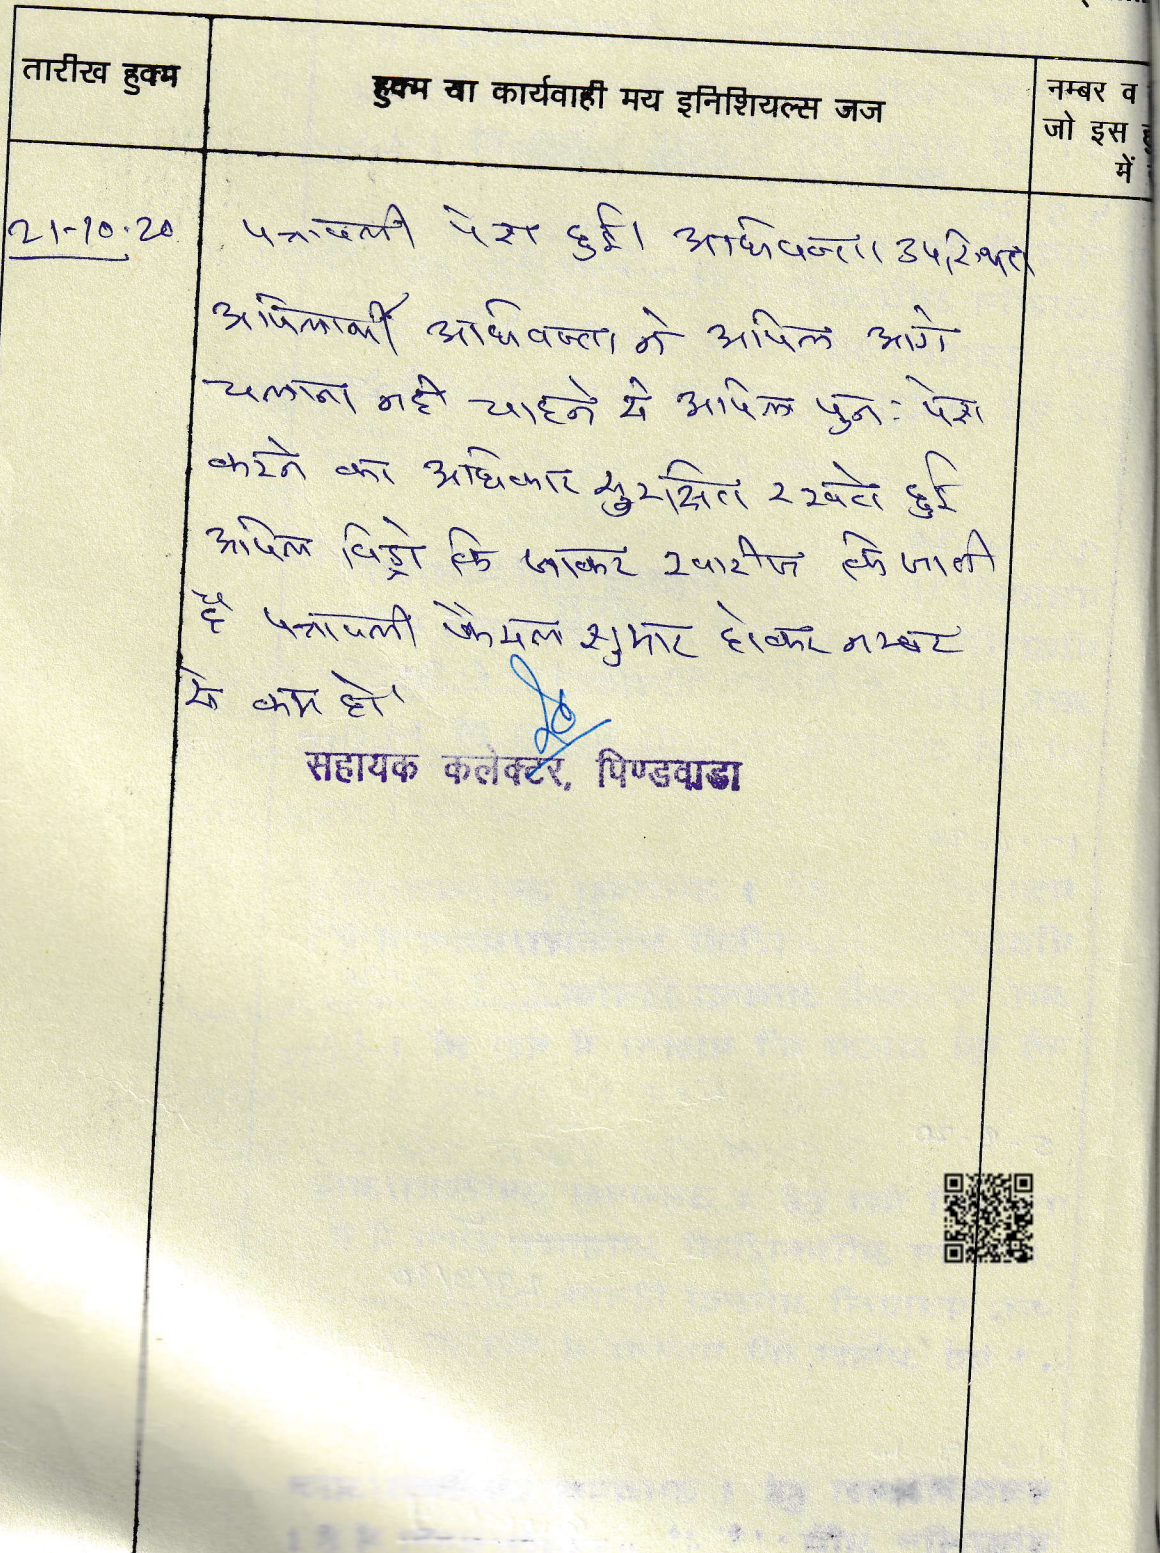 तारीख हुक्म
हुक्म या कार्यवाही मय इनिशियल्स जज
नम्बर व
जो इस
में
21-10-20
पत्रावली पेश हुई। अधिवक्ता उपस्थित
अपिलार्थी अधिवक्ता ने अपिल आगे
चलाना नही चाहने से अपिल पुनः पेश
करने का अधिकार सुरक्षित रखते हुई
अपिल विड्रो कि जाकर खारीज कि जाती
है पत्रावली फैसल शुमार होकर नम्बर
से कम हो।
सहायक कलेक्टर, पिण्डवाडा